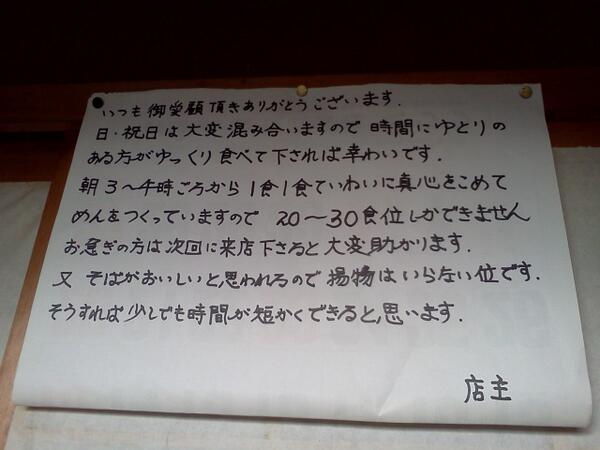 いつも御愛顧頂きありがとうございます.
日・祝日は大変混み合いますので 時間にゆとりの
ある方がゆっくり食べて下されば幸わいです.
朝3〜4時ごろから1食1食ていねいに真心をこめて
めんをつくっていますので 20〜30食位しかできません
お急ぎの方は次回に来店下さると大変助かります.
又 そばがおいしいと思われるので揚物はいらない位です.
そうすれば少しでも時間が短かくできると思います.
店主